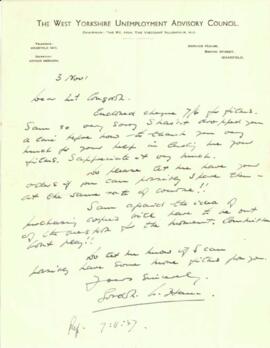 THE WEST YORKSHIRE UNEMPLOYMENT ADVISORY COUNCIL.
CHAIRMAN: THE RT. HON. THE VISCOUNT
SERVICE HOUSE,
WAKEFIELD.
3 Nov!
Dear
Enclosed cheque 7/6 for films.
I am so very sorry I haven't dropped you
a line before now to thank you very
much for your help in lending me your
films. I appreciate it very much.
Do please let me have your
orders if you can possibly spare them
at the same rate of course!!
I am afraid the idea of
purchasing copies will have to be out
of the question for the moment. Committee
won't play!!
Do let me know if I can
possibly have some more films from you.
Yours Sincerely
7.11.37